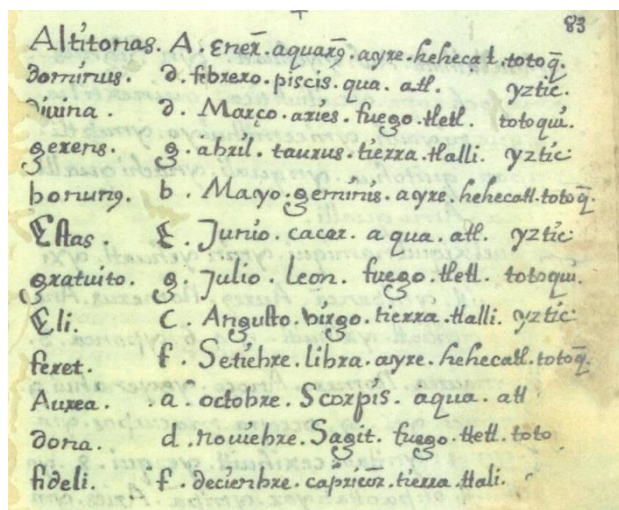 83
Altitonas. A. Enex̄. aquarꝰ. ayre. hehecat. totoq̄.
dominus. d. febrero. piscis. qua. atl. yztic.
diuina. d. Março. aries. fuego. tletl. totoqui.
gerens. g. abril. taurus. tierra. tlalli. yztic.
bonunꝰ. b. Mayo. geminis. ayre. hehecatl. totoq̄.
Estas. E. Junio. cacer. aqua. atl. yztic.
gratuito. g Julio. leon. fuego. tletl. totoqui.
Eli. C. Angusto. birgo. tierra. tlalli. yztic.
feret. f. Setiēbre. libra. ayre. hehecatl. totoq̄.
Aurea. a. octobre. Scorpis. aqua. atl
dona. d. nouiēbre. Sagit. fuego. tletl. toto
fideli. f. deciēnbre. capricor. tierra. tlali.